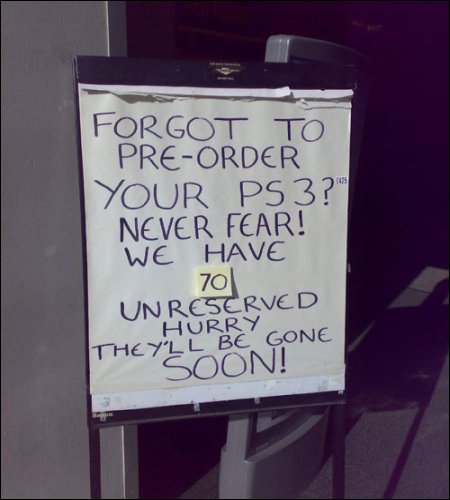 FORGOT TO
PRE-ORDER
YOUR PS3?
£425
NEVER FEAR!
WE HAVE
70
UNRESERVED
HURRY
THEY'LL BE GONE
SOON!